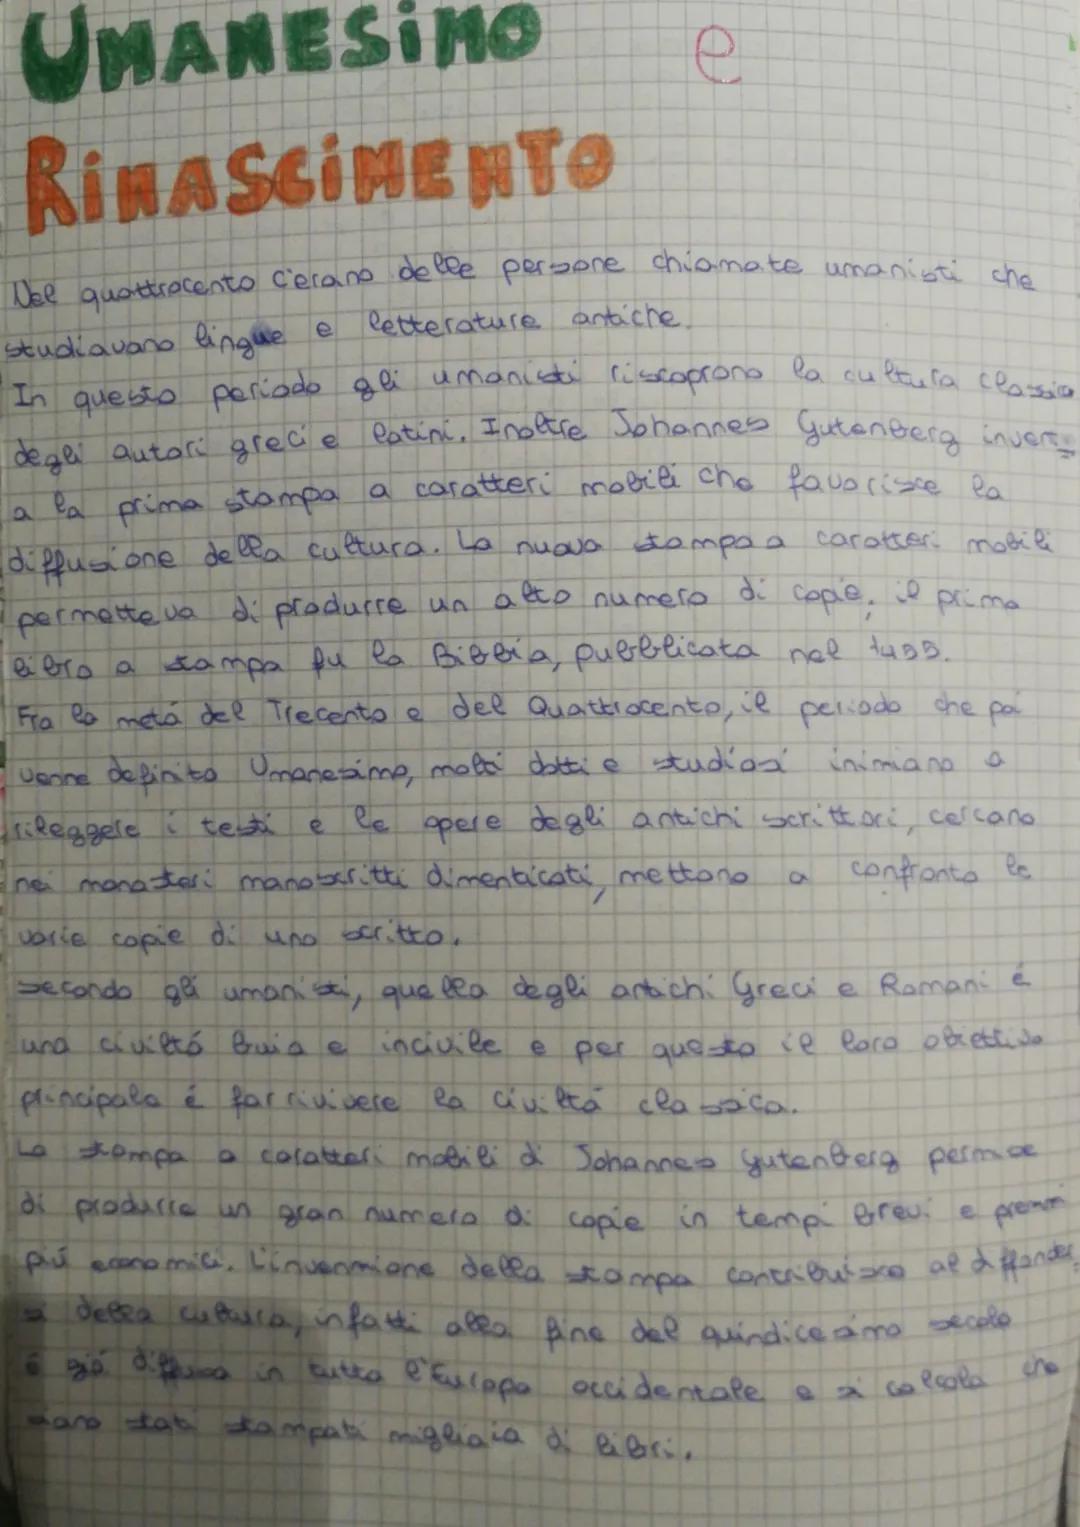 UMANESIMO e
RINASCIMENTO
Nel quattrocento c'erano delle persone chiamate umanisti che
studiavano lingue e letterature antiche.
In questo periodo gli umanisti riscoprono la cultura classica
degli autori greci e latini. Inoltre Johannes Gutenberg invent=
a la prima stampa a caratteri mobili che favorisce la
diffusione della cultura. La nuova stampa a caratteri mobili
permetteva di produrre un alto numero di copie, il primo
libro a stampa fu la Bibbia, pubblicata nel 1455.
Fra la metá del Trecento e del Quattrocento, il periodo che poi
venne definito Umanesimo, molti dotti e studiosi iniziano a
rileggere i testi e le opere degli antichi scrittori, cercano
nei monasteri manoscritti dimenticati, mettono a confronto le
varie copie di uno scritto.
Secondo gli umanisti, quella degli antichi Greci e Romani é
una civiltá buia e incivile e per questo il loro obiettivo
principale é far rivivere la civiltá classica.
La stampa a caratteri mobili di Johannes Gutenberg permise
di produrre un gran numero di copie in tempi brevi e prezzi
piú economici. L'invenzione della stampa contribuisce al diffonder
si della cultura, infatti alla fine del quindicesimo secolo
é giá diffusa in tutta l'Europa occidentale e si calcola che
siano stati stampati migliaia di libri.